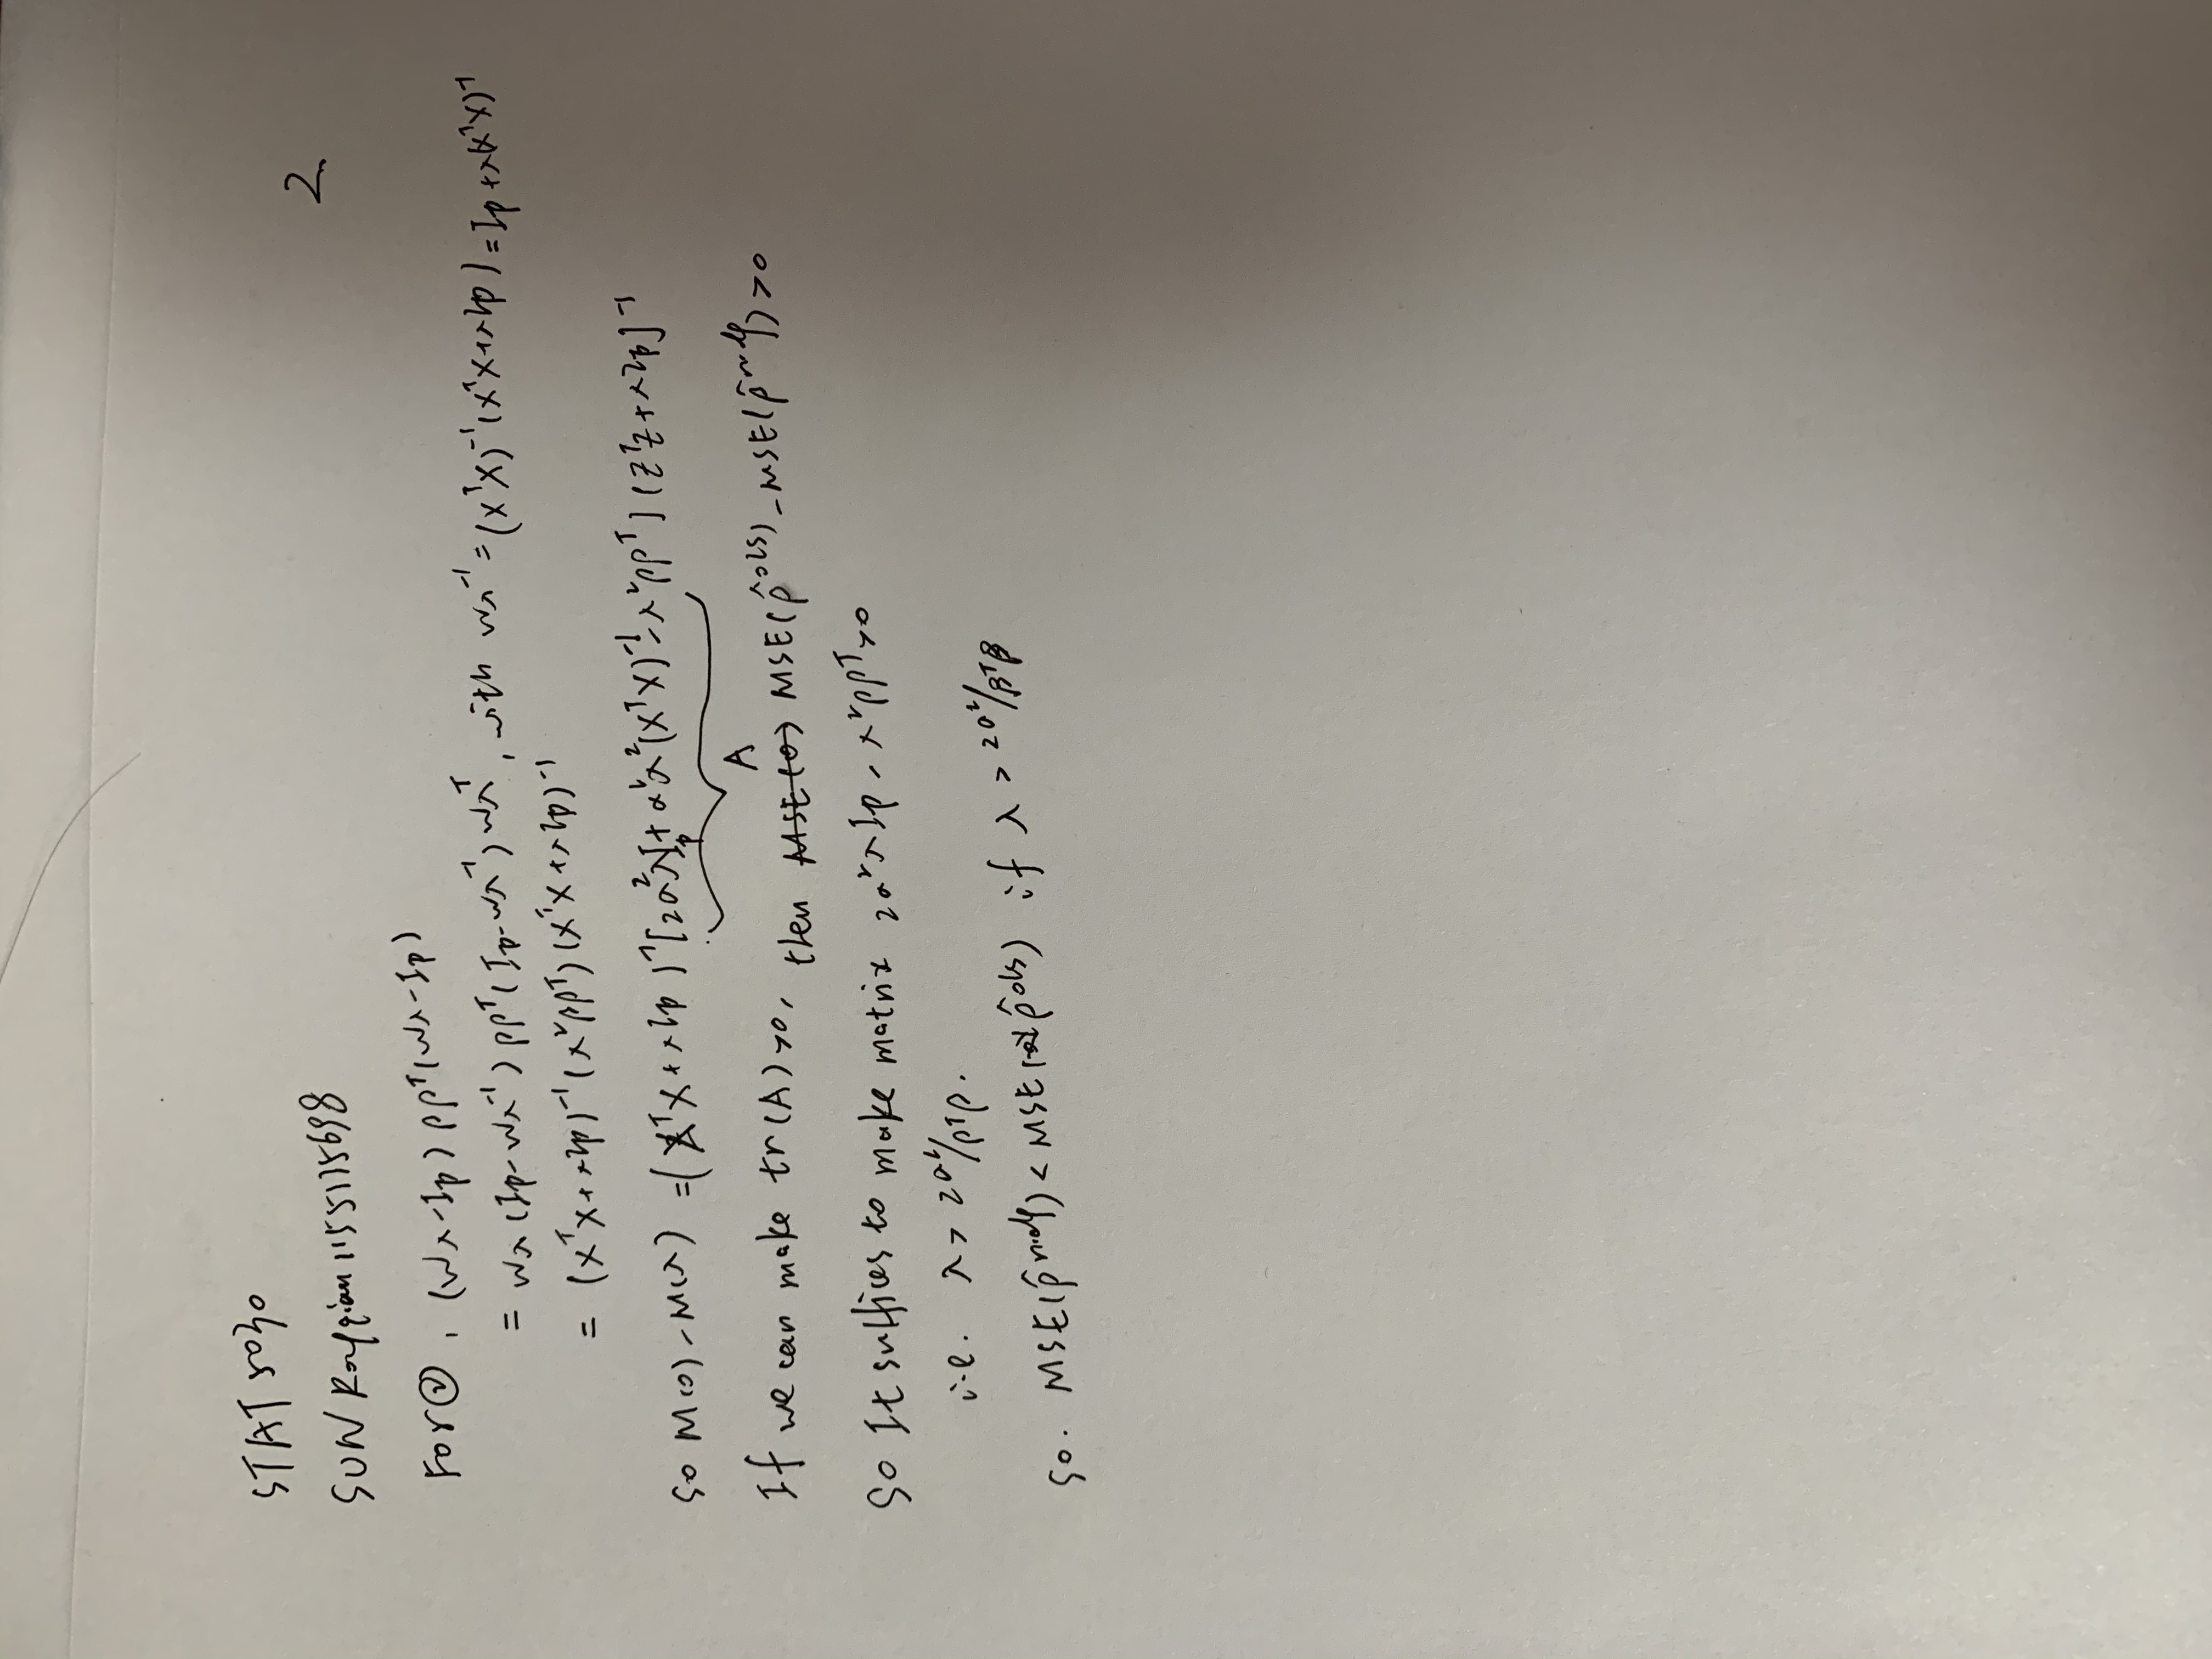 STAT 5030
2
SUN Rongqian 1155175698
For ②, (Wλ-Ip) ββᵀ(Wλ-Ip)
= Wλ(Ip-Wλ⁻¹) ββᵀ(Ip-Wλ⁻¹) Wλᵀ, with Wλ⁻¹ = (XᵀX)⁻¹(XᵀX+λIp) = Ip+λ(XᵀX)⁻¹
= (XᵀX+λIp)⁻¹(λ²ββᵀ)(XᵀX+λIp)⁻¹
So M(0)-M(λ) = (XᵀX+λIp)⁻¹[2σ²λIp+σ²λ²(XᵀX)⁻¹-λ²ββᵀ](ZᵀZ+λIp]⁻¹
A
If we can make tr(A)>0, then MSE(0) MSE(β̂ᵒˡˢ)-MSE(β̂ʳⁱᵈᵍ)>0
So It suffices to make matrix 2σ²λIp-λ²ββᵀ>0
i.e. λ > 2σ²/βᵀβ.
So. MSE(β̂ʳⁱᵈᵍ) < MSE(β̂ᵒˡˢ) if λ > 2σ²/βᵀβ